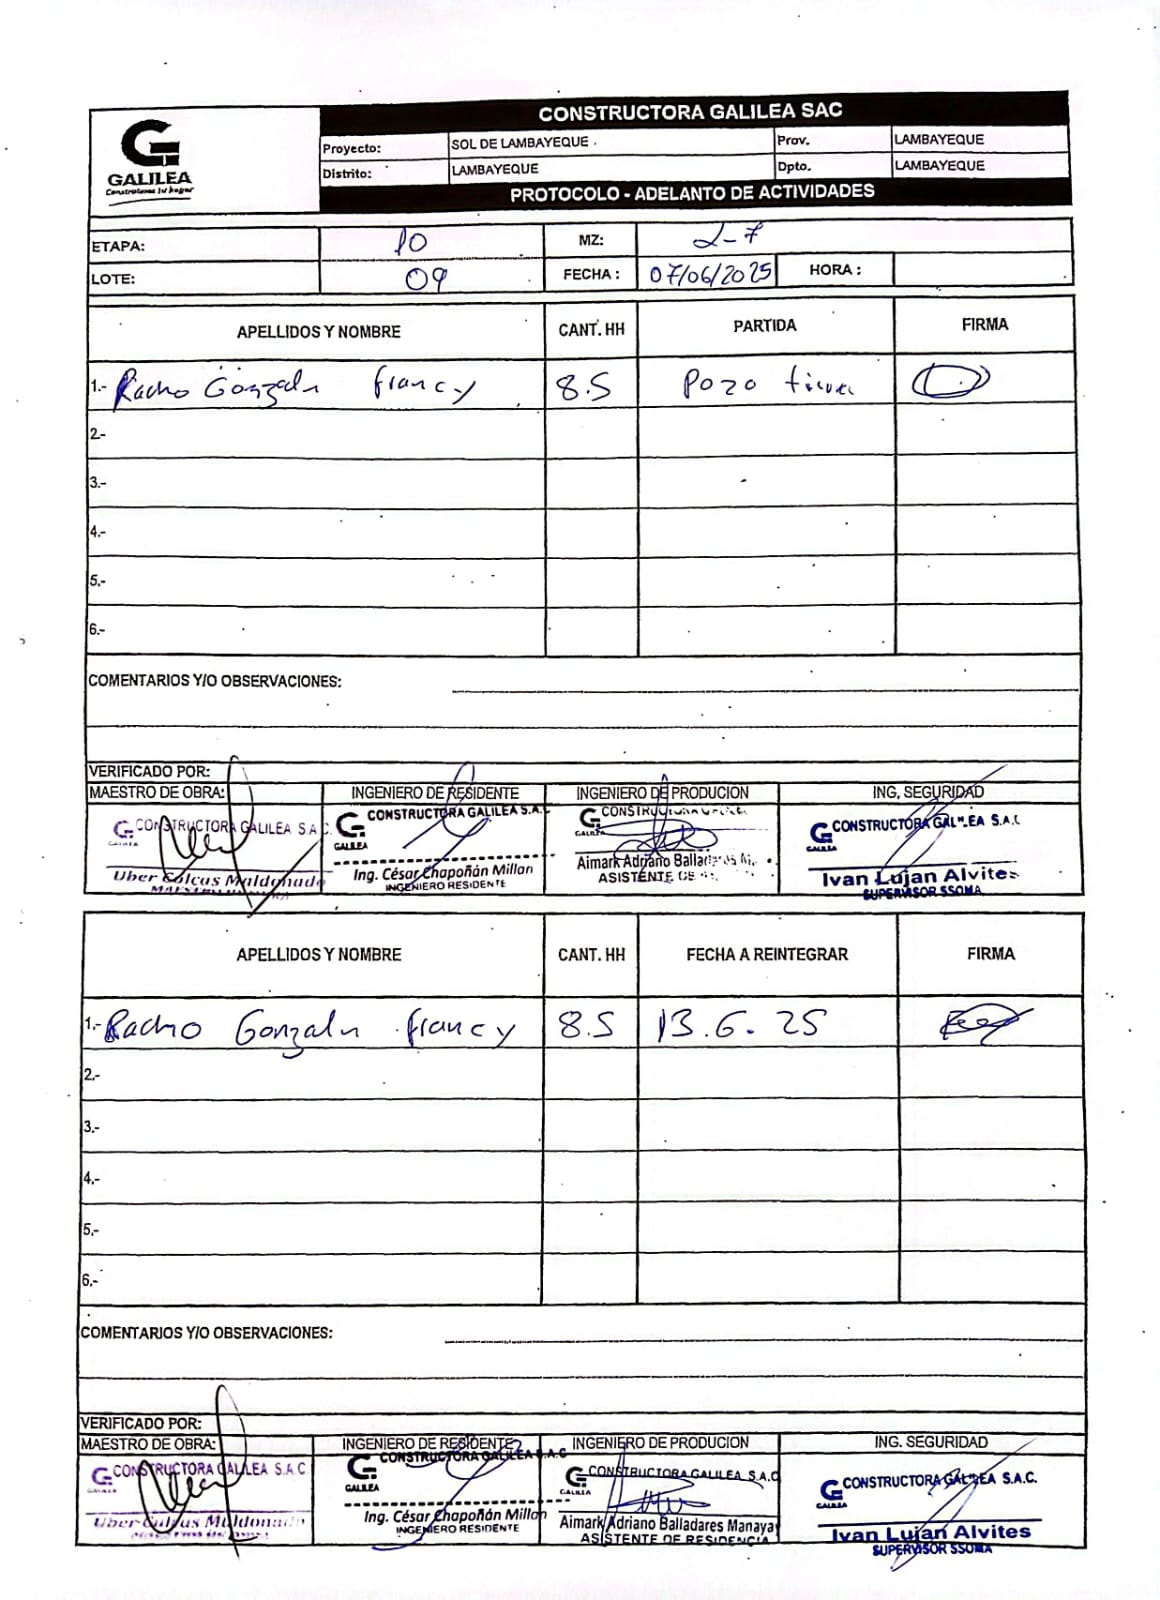 CONSTRUCTORA GALILEA SAC
GALILEA
Construimos tu hogar
Proyecto: SOL DE LAMBAYEQUE Prov. LAMBAYEQUE
Distrito: LAMBAYEQUE Dpto. LAMBAYEQUE
PROTOCOLO - ADELANTO DE ACTIVIDADES
ETAPA: 10 MZ: 2-7
LOTE: 09 FECHA : 07/06/2025 HORA :
APELLIDOS Y NOMBRE CANT. HH PARTIDA FIRMA
1.- Racho Gonzaln francy 8.5 Pozo
2.-
3.-
4.-
5.-
6.-
COMENTARIOS Y/O OBSERVACIONES:
VERIFICADO POR:
MAESTRO DE OBRA: INGENIERO DE RESIDENTE INGENIERO DE PRODUCION ING, SEGURIDAD
CONSTRUCTORA GALILEA S.A.C. CONSTRUCTORA GALILEA S.A.C CONSTRUCTORA GALILEA CONSTRUCTORA GALILEA S.A.C
GALILEA GALILEA GALILEA GALILEA
Uber Colcas Maldonado Ing. César Chapoñán Millan Aimark Adriano Balladares M. Ivan Lujan Alvites
MAESTRO DE OBRA INGENIERO RESIDENTE ASISTENTE DE SUPERVISOR SSOMA
APELLIDOS Y NOMBRE CANT. HH FECHA A REINTEGRAR FIRMA
1.- Racho Gonzaln francy 8.5 13.6.25
2.-
3.-
4.-
5.-
6.-
COMENTARIOS Y/O OBSERVACIONES:
VERIFICADO POR:
MAESTRO DE OBRA: INGENIERO DE RESIDENTE INGENIERO DE PRODUCION ING. SEGURIDAD
CONSTRUCTORA GALILEA S.A.C CONSTRUCTORA GALILEA S.A.C CONSTRUCTORA GALILEA S.A.C CONSTRUCTORA GALILEA S.A.C.
GALILEA GALILEA GALILEA GALILEA
Uber Colcas Maldonado Ing. César Chapoñán Millan Aimark Adriano Balladares Manaya Ivan Lujan Alvites
INGENIERO RESIDENTE ASISTENTE DE RESIDENCIA SUPERVISOR SSOMA